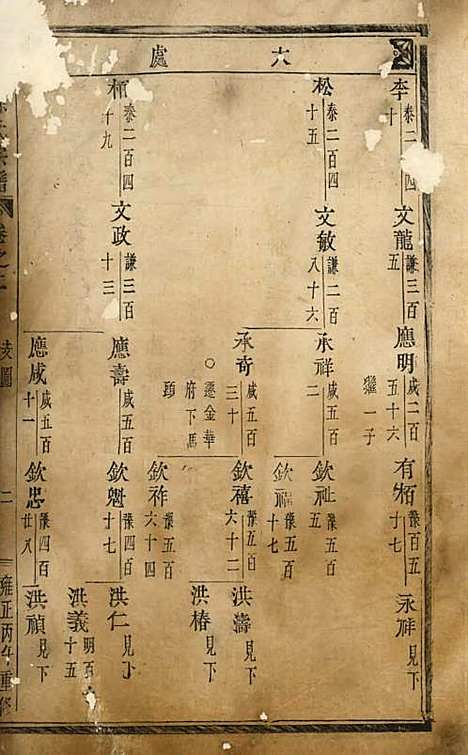 六處
李 泰二 四十
文龍 謙三百五
應明 咸二百五十六
繼一子
有栢 豫百五十七
永祥 見下
松 泰二百四十五
文敏 謙二百八十六
承祥 咸五百二
欽祉 豫五百五
欽福 豫五百
承奇 咸五百三十
○遷金華府下馬頭
欽禧 豫五百六十二
洪濤 見下
洪椿 見下
欽祚 豫五百六十四
栢 泰二百四十九
文政 謙三百十三
應壽 咸五百
欽魁 豫四百十七
洪仁 見下
洪義 明百十五
應咸 咸五百十一
欽忠 豫四百廿八
洪禎 見下
卷之二
支圖
二
雍正丙午重修